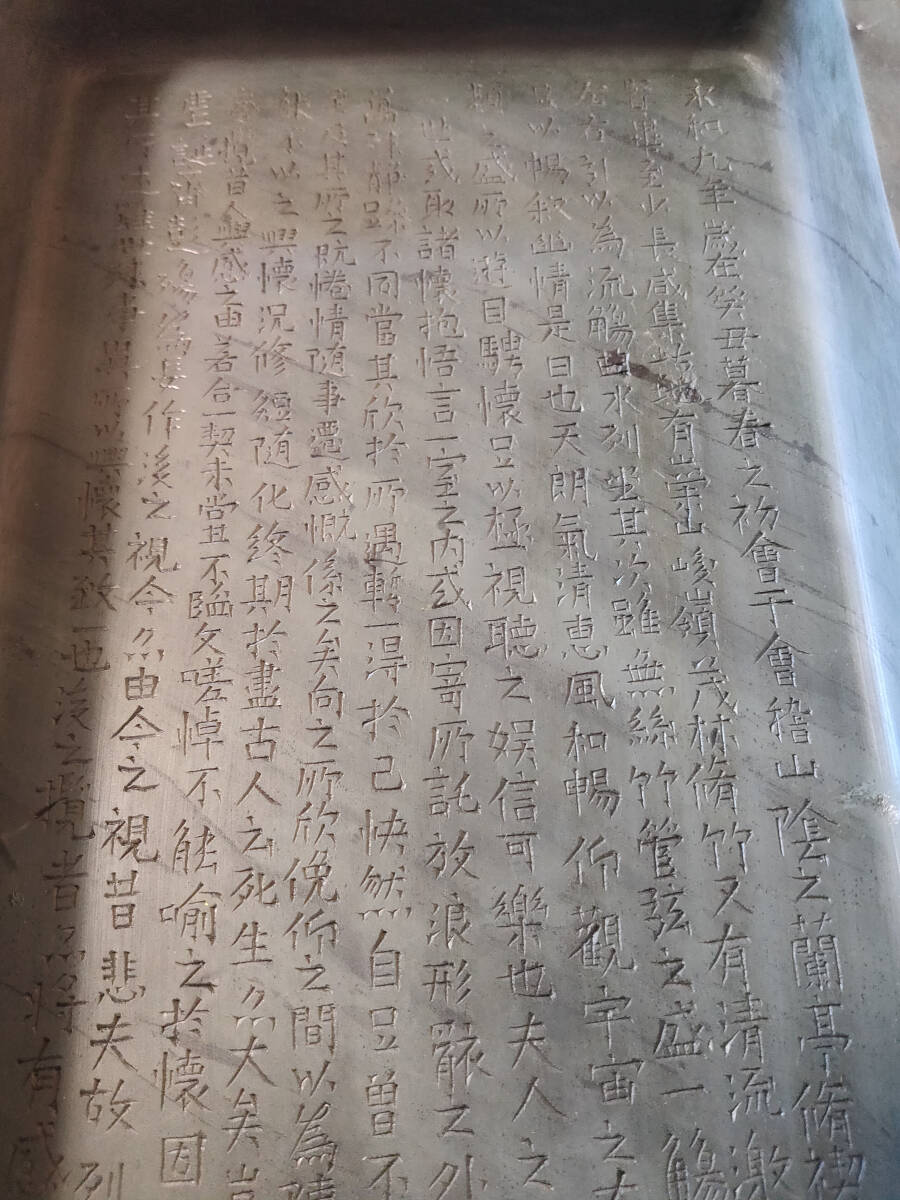 永和九年歲在癸丑暮春之初會于會稽山陰之蘭亭脩禊
賢畢至少長咸集此地有崇山峻嶺茂林脩竹又有清流激
左右引以為流觴曲水列坐其次雖無絲竹管弦之盛一觴
足以暢叙幽情是日也天朗氣清恵風和暢仰觀宇宙之大
類之盛所以遊目騁懷足以極視聽之娛信可樂也夫人之
一世或取諸懷抱悟言一室之內或因寄所託放浪形骸之外
萬殊靜躁不同當其欣於所遇暫得於己快然自足曾不
至及其所之既惓情隨事遷感慨係之矣向之所欣俛仰之間以為陳
能不以之興懷況修短隨化終期於盡古人云死生亦大矣豈
每攬昔人興感之由若合一契未嘗不臨文嗟悼不能喻之於懷固
虛誕齊彭殤為妄作後之視今亦由今之視昔悲夫故列
其所述雖世殊事異所以興懷其致一也後之攬者亦將有感